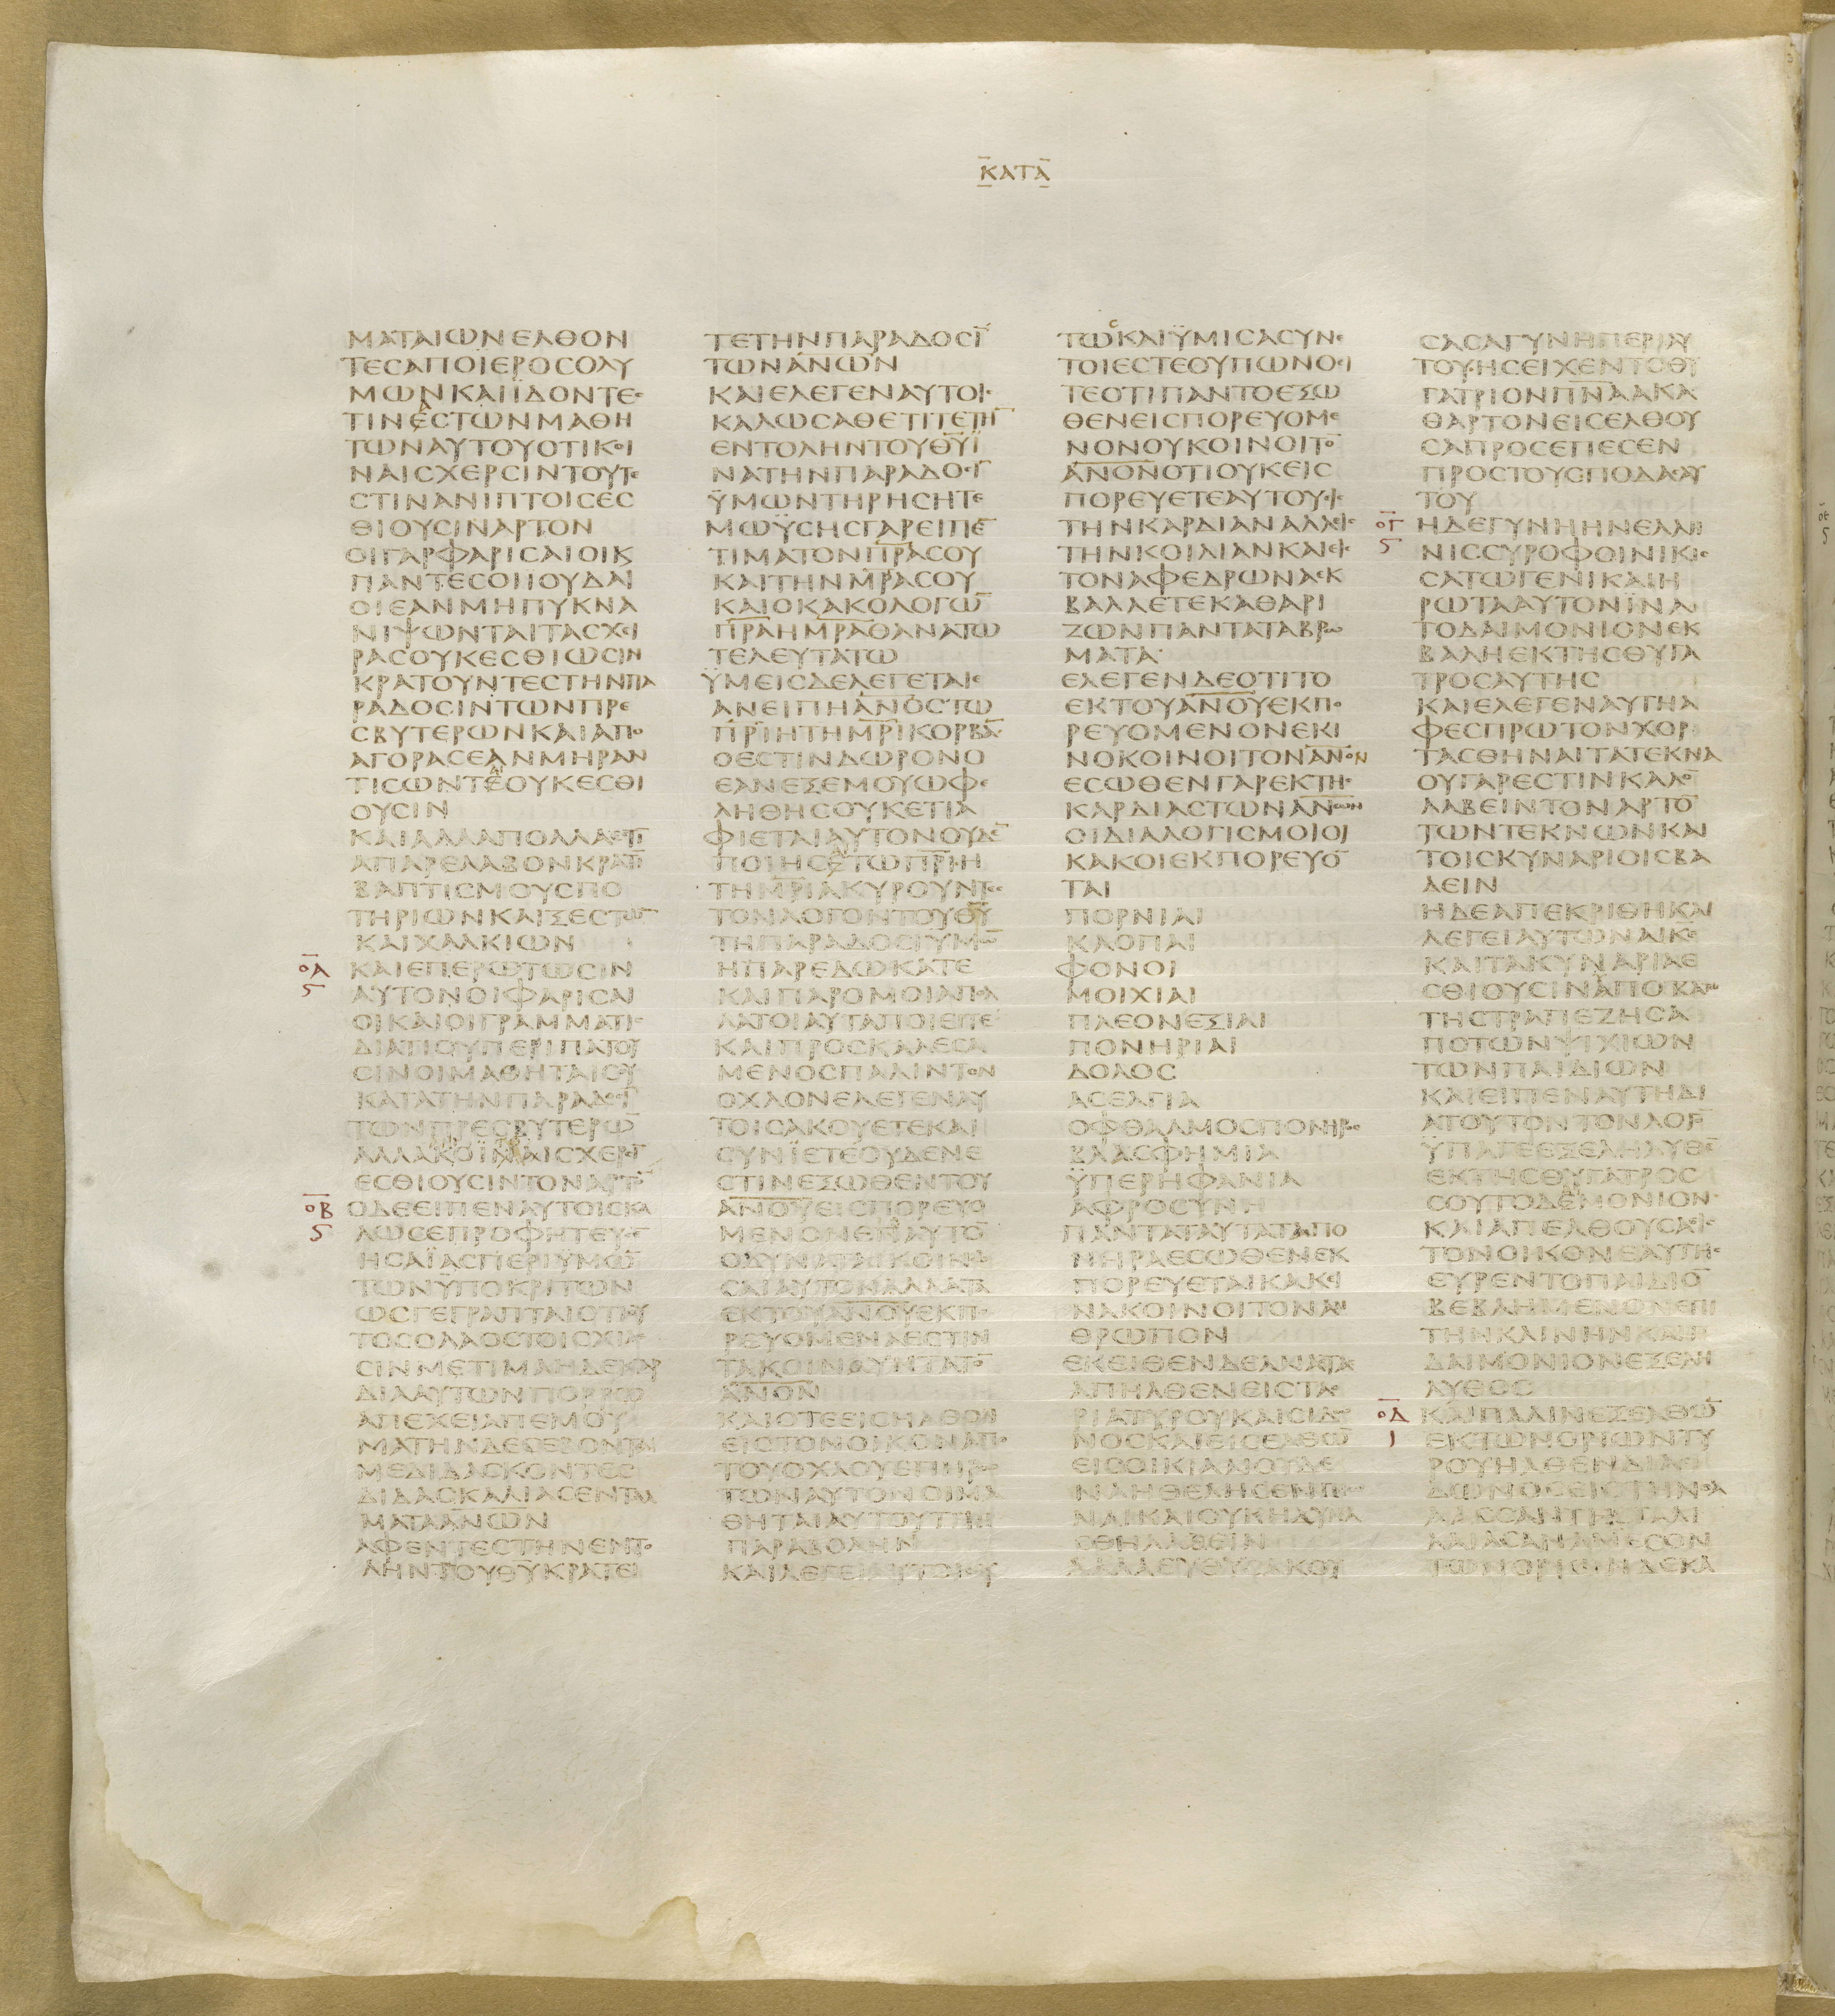 ΚΑΤΑ
ΜΑΤΑΙΩΝΕΛΘΟΝ
ΤΕCΑΠΟΙΕΡΟCΟΛΥ
ΜΩΝΚΑΙΪΔΟΝΤΕC
ΤΙΝΕCΤΩΝΜΑΘΗ
ΤΩΝΑΥΤΟΥΟΤΙΚΟΙ
ΝΑΙCΧΕΡCΙΝΤΟΥΤΕ
CΤΙΝΑΝΙΠΤΟΙCΕC
ΘΙΟΥCΙΝΑΡΤΟΝ
ΟΙΓΑΡΦΑΡΙCΑΙΟΙΚ
ΠΑΝΤΕCΟΙΙΟΥΔΑΙ
ΟΙΕΑΝΜΗΠΥΚΝΑ
ΝΙΨΩΝΤΑΙΤΑCΧΕΙ
ΡΑCΟΥΚΕCΘΙΩCΙΝ
ΚΡΑΤΟΥΝΤΕCΤΗΝΠΑ
ΡΑΔΟCΙΝΤΩΝΠΡΕ
CΒΥΤΕΡΩΝΚΑΙΑΠΟ
ΑΓΟΡΑCΕΑΝΜΗΡΑΝ
ΤΙCΩΝΤΕΟΥΚΕCΘΙ
ΟΥCΙΝ
ΚΑΙΑΛΛΑΠΟΛΛΑΕCΤΙ
ΑΠΑΡΕΛΑΒΟΝΚΡΑΤΙ
ΒΑΠΤΙCΜΟΥCΠΟ
ΤΗΡΙΩΝΚΑΙΞΕCΤΩ̅
ΚΑΙΧΑΛΚΙΩΝ
ΟΑ
Ϛ
ΚΑΙΕΠΕΡΩΤΩCΙΝ
ΑΥΤΟΝΟΙΦΑΡΙCΑΙ
ΟΙΚΑΙΟΙΓΡΑΜΜΑΤΙC
ΔΙΑΤΙΟΥΠΕΡΙΠΑΤΟΥ
CΙΝΟΙΜΑΘΗΤΑΙCΟΥ
ΚΑΤΑΤΗΝΠΑΡΑΔΟCΙ̅
ΤΩΝΠΡΕCΒΥΤΕΡΩ̅
ΑΛΛΑΚΟΙΝΑΙCΧΕΡCΙ̅
ΕCΘΙΟΥCΙΝΤΟΝΑΡΤΟ̅
ΟΒ
Ϛ
ΟΔΕΕΙΠΕΝΑΥΤΟΙCΚΑ
ΛΩCΕΠΡΟΦΗΤΕΥCΕ̅
ΗCΑΪΑCΠΕΡΙΫΜΩ̅
ΤΩΝΫΠΟΚΡΙΤΩΝ
ΩCΓΕΓΡΑΠΤΑΙΟΤΙΟΥ
ΤΟCΟΛΑΟCΤΟΙCΧΙΛΕ
CΙΝΜΕΤΙΜΑΗΔΕΚΑΡ
ΔΙΑΑΥΤΩΝΠΟΡΡΩ
ΑΠΕΧΕΙΑΠΕΜΟΥ
ΜΑΤΗΝΔΕCΕΒΟΝΤΑΙ
ΜΕΔΙΔΑCΚΟΝΤΕC
ΔΙΔΑCΚΑΛΙΑCΕΝΤΑΛ
ΜΑΤΑΑΝΩΝ
ΑΦΕΝΤΕCΤΗΝΕΝΤΟ
ΛΗΝΤΟΥΘΥΚΡΑΤΕΙ
ΤΕΤΗΝΠΑΡΑΔΟCΙ̅
ΤΩΝΑΝΩΝ
ΚΑΙΕΛΕΓΕΝΑΥΤΟΙC
ΚΑΛΩCΑΘΕΤΙΤΕΤΗ̅
ΕΝΤΟΛΗΝΤΟΥΘΥΪ
ΝΑΤΗΝΠΑΡΑΔΟCΙ̅
ΫΜΩΝΤΗΡΗCΗΤΕ
ΜΩΫCΗCΓΑΡΕΙΠΕ̅
ΤΙΜΑΤΟΝΠΡΑCΟΥ
ΚΑΙΤΗΝΜΡΑCΟΥ
ΚΑΙΟΚΑΚΟΛΟΓΩ̅
ΠΡΑΗΜΡΑΘΑΝΑΤΩ
ΤΕΛΕΥΤΑΤΩ
ΫΜΕΙCΔΕΛΕΓΕΤΑΙΕ
ΑΝΕΙΠΗΑΝΟCΤΩ
ΠΡΙΗΤΗΜΡΙΚΟΡΒΑ̅
ΟΕCΤΙΝΔΩΡΟΝΟ
ΕΑΝΕΞΕΜΟΥΩΦΕ
ΛΗΘΗCΟΥΚΕΤΙΑ
ΦΙΕΤΑΙΑΥΤΟΝΟΥΔΕ̅
ΠΟΙΗCΕΤΩΠΡΙΗ
ΤΗΜΡΙΑΚΥΡΟΥΝΤΕC
ΤΟΝΛΟΓΟΝΤΟΥΘΥ
ΤΗΠΑΡΑΔΟCΙΫΜΩ̅
ΗΠΑΡΕΔΩΚΑΤΕ
ΚΑΙΠΑΡΟΜΟΙΑΠΟΛ
ΛΑΤΟΙΑΥΤΑΠΟΙΕΙΤΕ
ΚΑΙΠΡΟCΚΑΛΕCΑ
ΜΕΝΟCΠΑΛΙΝΤΟΝ
ΟΧΛΟΝΕΛΕΓΕΝΑΥ
ΤΟΙCΑΚΟΥΕΤΕΚΑΙ
CΥΝΪΕΤΕΟΥΔΕΝΕ
CΤΙΝΕΞΩΘΕΝΤΟΥ
ΑΝΟΥΕΙCΠΟΡΕΥΟ
ΜΕΝΟΝΕΙCΑΥΤΟ̅
ΟΔΥΝΑΤΑΙΚΟΙΝΩ
CΑΙΑΥΤΟΝΑΛΛΑΤΑ
ΕΚΤΟΥΑΝΟΥΕΚΠΟ
ΡΕΥΟΜΕΝΑΕCΤΙΝ
ΤΑΚΟΙΝΟΥΝΤΑΤΟ̅
ΑΝΟΝ
ΚΑΙΟΤΕΕΙCΗΛΘΟΝ
ΕΙCΤΟΝΟΙΚΟΝΑΠΟ
ΤΟΥΟΧΛΟΥΕΠΗΡΩ
ΤΩΝΑΥΤΟΝΟΙΜΑ
ΘΗΤΑΙΑΥΤΟΥΤΗΝ
ΠΑΡΑΒΟΛΗΝ
ΚΑΙΛΕΓΕΙΑΥΤΟΙCΟΥ
ΤΩCΚΑΙΫΜΙCΑCΥΝΕ
ΤΟΙΕCΤΕΟΥΠΩΝΟΕΙ
ΤΕΟΤΙΠΑΝΤΟΕΞΩ
ΘΕΝΕΙCΠΟΡΕΥΟΜΕ
ΝΟΝΟΥΚΟΙΝΟΙΤΟ̅
ΑΝΟΝΟΤΙΟΥΚΕΙC
ΠΟΡΕΥΕΤΕΑΥΤΟΥΕΙC
ΤΗΝΚΑΡΔΙΑΝΑΛΛΕΙC
ΤΗΝΚΟΙΛΙΑΝΚΑΙΕΙC
ΤΟΝΑΦΕΔΡΩΝΑΕΚ
ΒΑΛΛΕΤΕΚΑΘΑΡΙ
ΖΩΝΠΑΝΤΑΤΑΒΡΩ
ΜΑΤΑ
ΕΛΕΓΕΝΔΕΟΤΙΤΟ
ΕΚΤΟΥΑΝΟΥΕΚΠΟ
ΡΕΥΟΜΕΝΟΝΕΚΙ
ΝΟΚΟΙΝΟΙΤΟΝΑΝΟΝ
ΕCΩΘΕΝΓΑΡΕΚΤΗC
ΚΑΡΔΙΑCΤΩΝΑΝΩΝ
ΟΙΔΙΑΛΟΓΙCΜΟΙΟΙ
ΚΑΚΟΙΕΚΠΟΡΕΥΟ̅
ΤΑΙ
ΠΟΡΝΙΑΙ
ΚΛΟΠΑΙ
ΦΟΝΟΙ
ΜΟΙΧΙΑΙ
ΠΛΕΟΝΕΞΙΑΙ
ΠΟΝΗΡΙΑΙ
ΔΟΛΟC
ΑCΕΛΓΙΑ
ΟΦΘΑΛΜΟCΠΟΝΗΡΟC
ΒΛΑCΦΗΜΙΑ
ΫΠΕΡΗΦΑΝΙΑ
ΑΦΡΟCΥΝΗ
ΠΑΝΤΑΤΑΥΤΑΤΑΠΟ
ΝΗΡΑΕCΩΘΕΝΕΚ
ΠΟΡΕΥΕΤΑΙΚΑΚΕΙ
ΝΑΚΟΙΝΟΙΤΟΝΑΝ
ΘΡΩΠΟΝ
ΕΚΕΙΘΕΝΔΕΑΝΑCΤΑC
ΑΠΗΛΘΕΝΕΙCΤΑΟ
ΡΙΑΤΥΡΟΥΚΑΙCΙΔΩ
ΝΟCΚΑΙΕΙCΕΛΘΩ̅
ΕΙCΟΙΚΙΑΝΟΥΔΕ
ΝΑΗΘΕΛΗCΕΝΓΝΩ
ΝΑΙΚΑΙΟΥΚΗΔΥΝΑ
CΘΗΛΑΘΕΙΝ
ΑΛΛΑΕΥΘΥCΑΚΟΥ
CΑCΑΓΥΝΗΠΕΡΙΑΥ
ΤΟΥΗCΕΙΧΕΝΤΟΘΥ
ΓΑΤΡΙΟΝΠΝΑΑΚΑ
ΘΑΡΤΟΝΕΙCΕΛΘΟΥ
CΑΠΡΟCΕΠΕCΕΝ
ΠΡΟCΤΟΥCΠΟΔΑCΑΥ
ΤΟΥ
ΟΓ
Ϛ
ΗΔΕΓΥΝΗΗΝΕΛΛΗ
ΝΙCCΥΡΟΦΟΙΝΙΚΙC
CΑΤΩΓΕΝΙΚΑΙΗ
ΡΩΤΑΑΥΤΟΝΪΝΑ
ΤΟΔΑΙΜΟΝΙΟΝΕΚ
ΒΑΛΗΕΚΤΗCΘΥΓΑ
ΤΡΟCΑΥΤΗC
ΚΑΙΕΛΕΓΕΝΑΥΤΗΑ
ΦΕCΠΡΩΤΟΝΧΟΡ
ΤΑCΘΗΝΑΙΤΑΤΕΚΝΑ
ΟΥΓΑΡΕCΤΙΝΚΑΛΟ̅
ΛΑΒΕΙΝΤΟΝΑΡΤΟ̅
ΤΩΝΤΕΚΝΩΝΚΑΙ
ΤΟΙCΚΥΝΑΡΙΟΙCΒΑ
ΛΕΙΝ
ΗΔΕΑΠΕΚΡΙΘΗΚΑΙ
ΛΕΓΕΙΑΥΤΩΝΑΙΚΕ
ΚΑΙΤΑΚΥΝΑΡΙΑΕ
CΘΙΟΥCΙΝΑΠΟ
ΤΗCΤΡΑΠΕΖΗCΑ
ΠΟΤΩΝΨΙΧΙΩΝ
ΤΩΝΠΑΙΔΙΩΝ
ΚΑΙΕΙΠΕΝΑΥΤΗΔΙ
ΑΤΟΥΤΟΝΤΟΝΛΟΓΟ̅
ΫΠΑΓΕΕΞΕΛΗΛΥΘΕ̅
ΕΚΤΗCΘΥΓΑΤΡΟC
CΟΥΤΟΔΕΜΟΝΙΟΝ
ΚΑΙΑΠΕΛΘΟΥCΑΕΙC
ΤΟΝΟΙΚΟΝΕΑΥΤΗC
ΕΥΡΕΝΤΟΠΑΙΔΙΟ̅
ΒΕΒΛΗΜΕΝΟΝΕΠΙ
ΤΗΝΚΛΙΝΗΝΚΑΙΤΟ
ΔΑΙΜΟΝΙΟΝΕΞΕΛΗ
ΛΥΘΟC
ΟΔ
Ι
ΚΑΙΠΑΛΙΝΕΞΕΛΘΩ̅
ΕΚΤΩΝΟΡΙΩΝΤΥ
ΡΟΥΗΛΘΕΝΔΙΑCΙ
ΔΩΝΟCΕΙCΤΗΝΘΑ
ΛΑCCΑΝΤΗCΓΑΛΙ
ΛΑΙΑCΑΝΑΜΕCΟΝ
ΤΩΝΟΡΙΩΝΔΕΚΑ